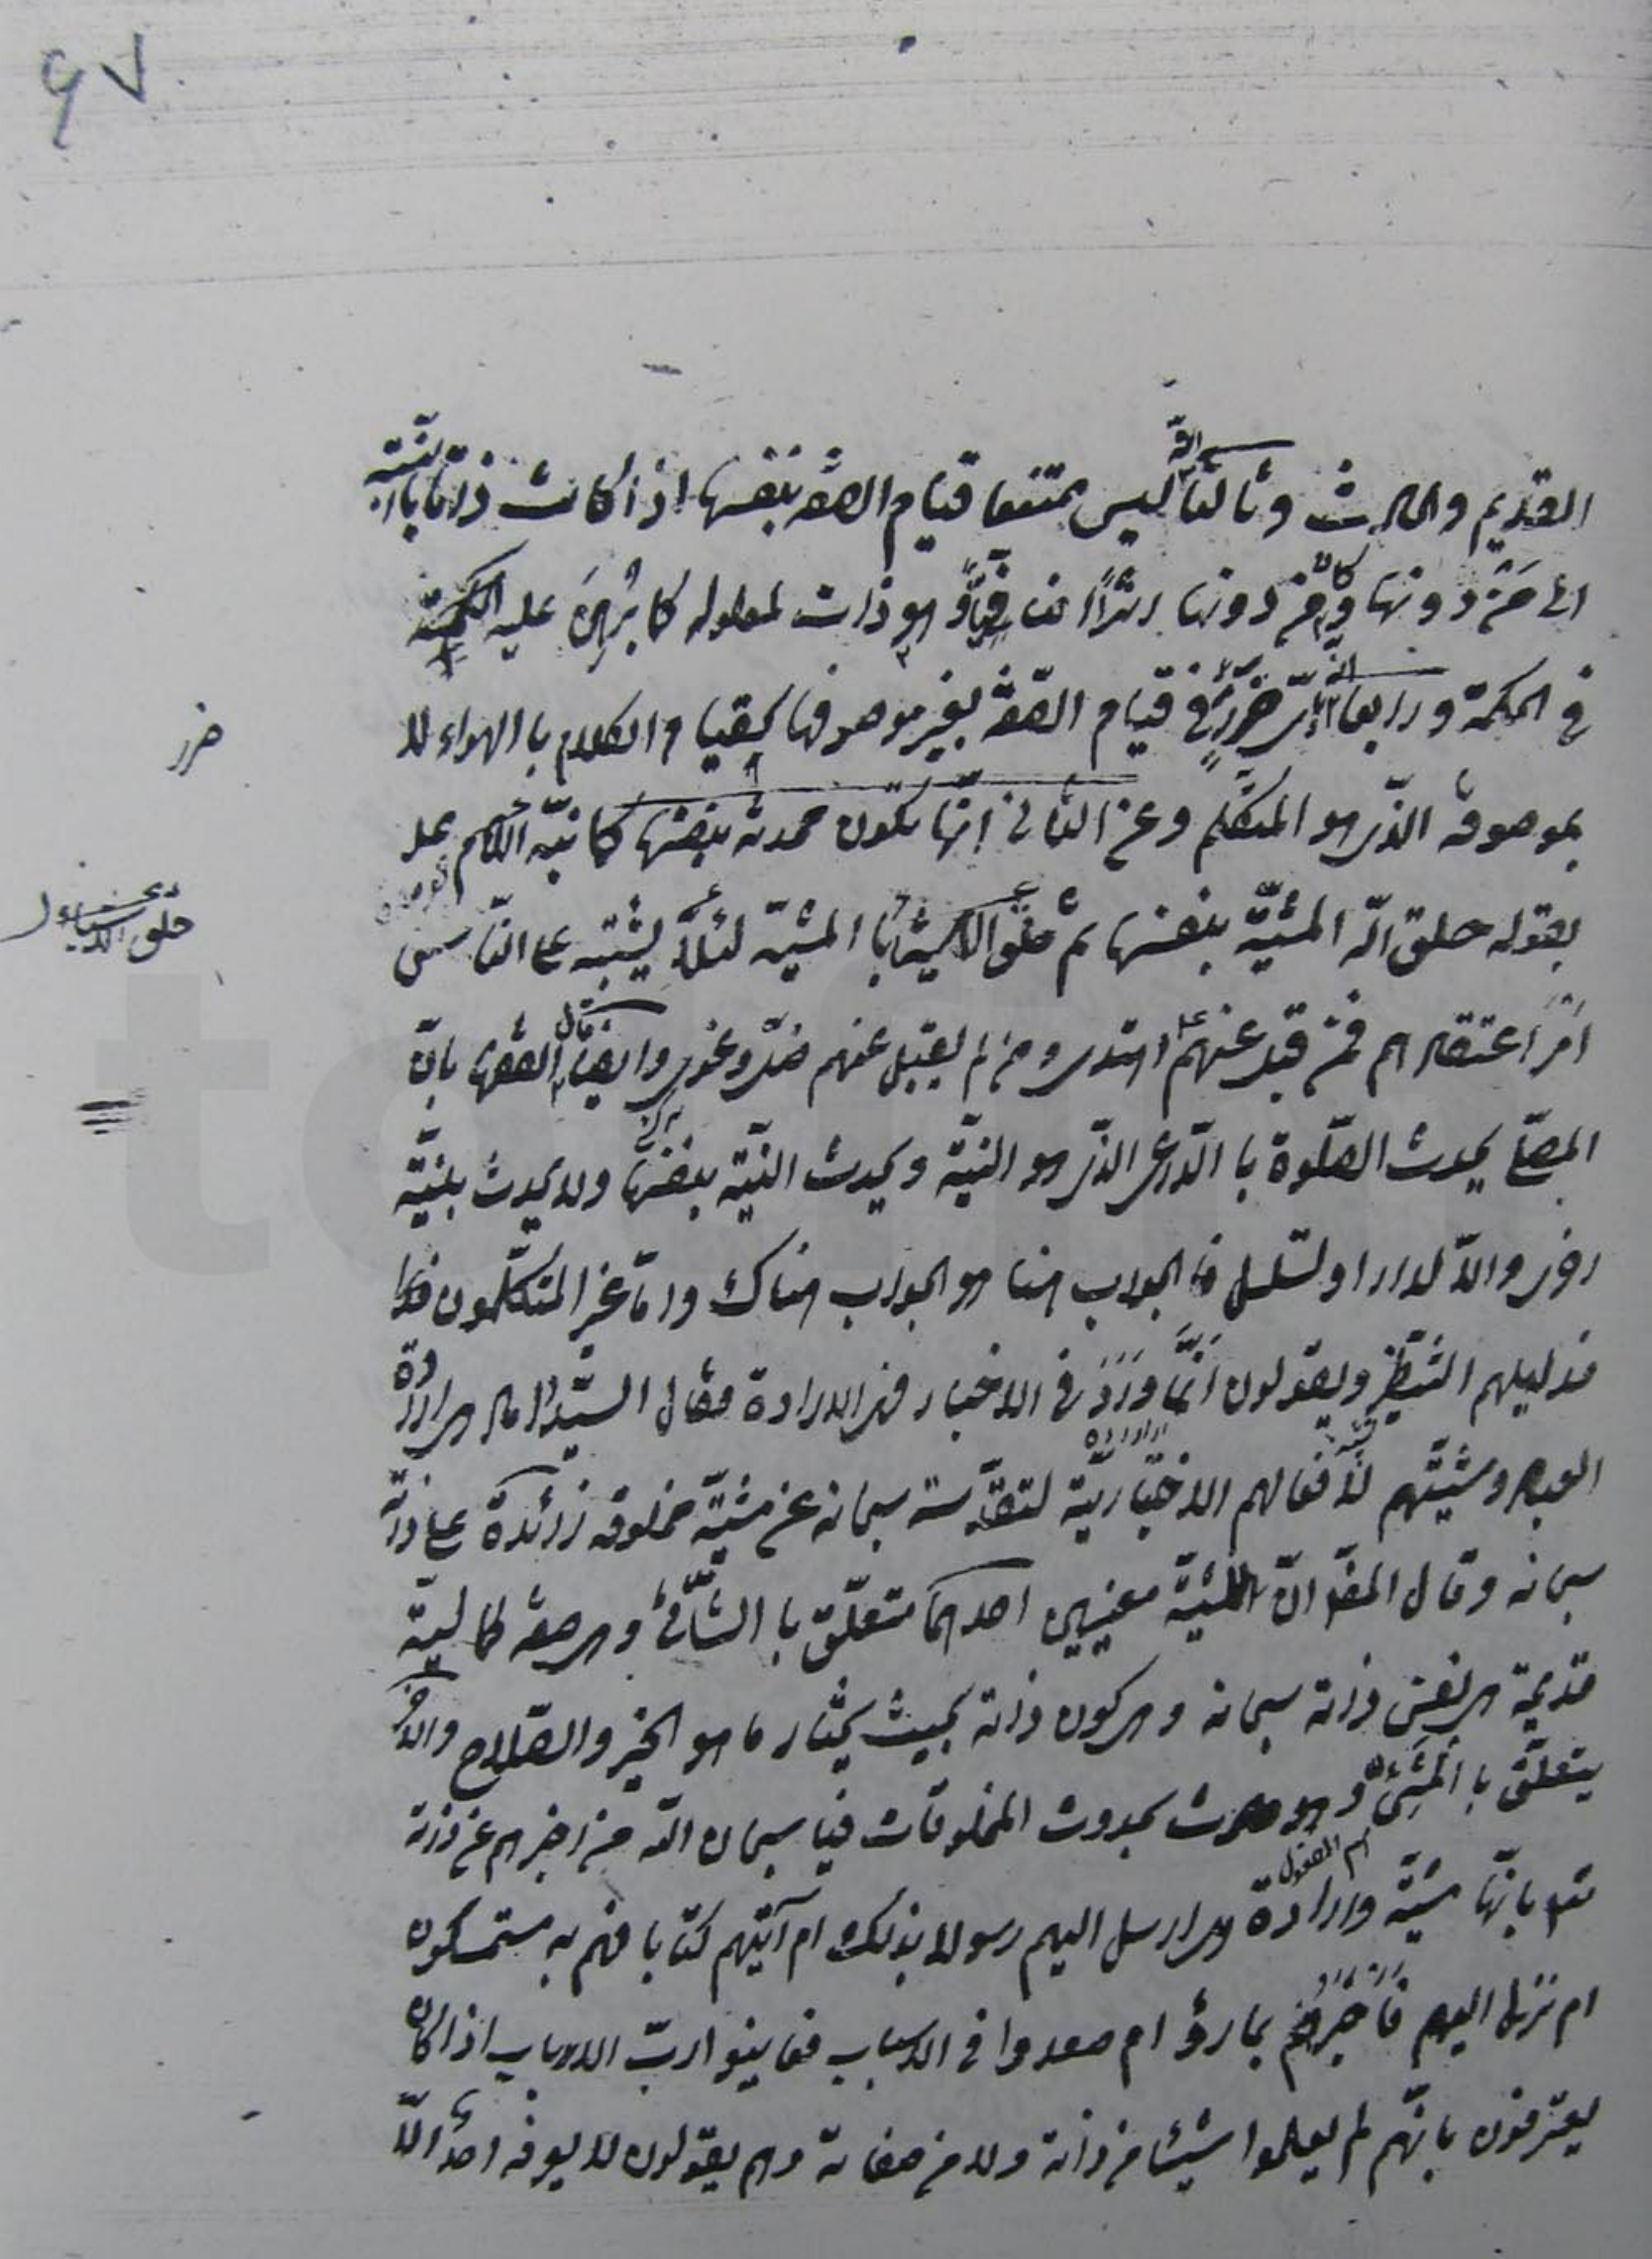 ٩٧
القديم والحادث وثالثا انّه ليس ممتنعا قيام الصفة بنفسها اذا كانت ذاتا بالنسبة
الى مَن دونها وان كان من دونها اثراً لمن فوقها وهو ذات لمعلوله كما بُرهِنَ عليه
في الحكمة ورابعا انّه اىّ ضررٍ في قيام الصّفة بغير موصوفها كقيام الكلام با الهواء لا
بموصوفه الذّى هو المتكلّم وعن الثانى انّها تكون محدثة بنفسها كما نبّه الامام عليه
بقوله خلق الله المشيّة بنفسها ثم خلق الاشياء با المشيّة لئلّا يشتبه على النّاس
امر اعتقادهم فمن قبل عنهم اهتدى ومن لم يقبل عنهم ضلّ وغوى وايضا قال الفقهاء بانّ
المصلّى يحدث الصّلوة با الدّاعى الذّى هو النيّة ويحدث النيّة بنفسها ولا يحدث بنيّة
اخرى والاّ لدار او تسلسل فما الجواب هنا هو الجواب هناك وامّا غير المتكلّمون
فدليلهم ويقولون انّما وَرَدَ في الاخبار من الارادة فقال السّيّد الداماد هى ارادة
العباد ومشيّتهم لأفعالهم الاختياريّة لتقدّسه سبحانه عن مشيّة مخلوقة زائدة على ذاته
سبحانه وقال المفيد انّ للمشيّة معنيين احدهما متعلّق با الشّائى وهى صفة كماليّة
قديمة هى نفس ذاته سبحانه وهى كون ذاته بحيث يختار ما هو الخير والصّلاح والاخر
يتعلّق با المَشِئ وهو حادث بحدوث المخلوقات فيا سبحان الله من اخبرهم عن ذاته
اسم المفعول
تعالى بانّها مشيّة وارادة هل ارسل اليهم رسولا بذلك ام آتيهم كتابا فهم به مستمسكون
ام نزل اليهم فأخبرهم بما رؤ ام صعدوا في الاسباب فعاينوا ربّ الارباب اذا كان
يعترفون بانّهم لم يعلموا شيئا من ذاته ولا من صفاته وهم يقولون لا يعرفه احد الّا
ضرر
خلق الاشياء